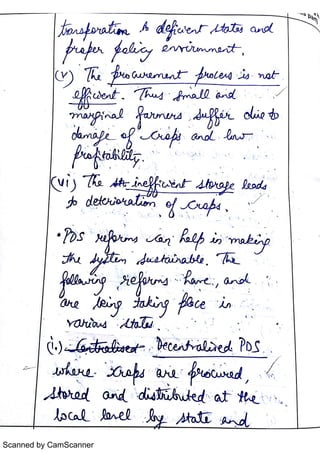 transporation to deficient states and
proper policy environment.
(v) The procurement process is not
efficient. Thus small and
marginal farmers suffer due to
damage of crops and low
profitability.
(vi) The inefficient storage leads
to deterioration of crops.
• PDS reforms can help in making
the system sustainable. The
following reforms have, and
are being taking place in
various states.
(i.) Centralised Decentralised PDS
where crops are procured,
stored and distributed at the
local level by state and
Scanned by CamScanner